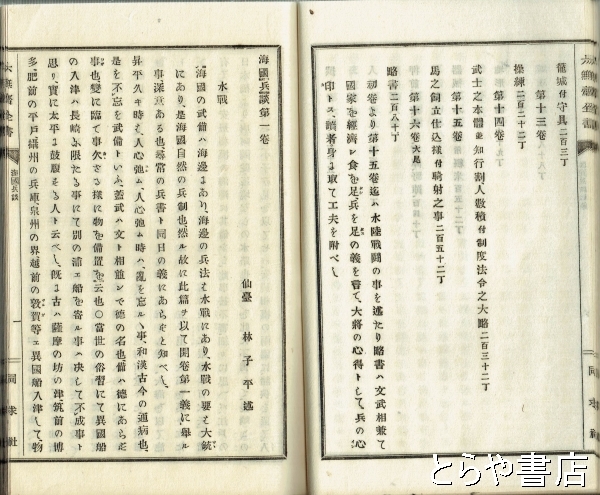 籠城付守具 二百三丁
第十三卷
操練 二百十二丁
第十四卷
武士之本體並知行割人數積付制度法令之大略 二百三十二丁
第十五卷
馬之飼立仕込樣付騎射之事 二百五十二丁
第十六卷大尾
略書 二百八十丁
初卷より第十五卷迄ハ水陸戰鬪の事を述たり略書ハ文武相兼て
國家を經濟し食を足兵を足の義を著て、大將の心得トして、兵の心
印トス、讀者身ニ取て工夫を附べし
海國兵談第一卷
仙臺 林子平述
水戰
海國の武備ハ海邊にあり、海邊の兵法ハ水戰にあり、水戰の要ハ大銃
にあり、是海國自然の兵制也然ル故に此篇ヲ以て開卷第一義に擧ル
事、深意ある也尋常の兵書ト同日の義にあらずと知べし、
昇平久キ時ハ人心弛ム、人心弛ム時ハ、亂を忘ルヽ事、和漢古今の通病也、
是を不忘を武備トいふ、蓋武ハ文ト相並ンで德の名也備ハ德にあらず
事也、變に臨て事欠さる樣に物を備置を云也〇當世の俗習にて異國船
の入津ハ長崎に限たる事にて別の浦江船を寄ル事ハ決して不成事ト
思リ、實に太平に鼓腹する人ト云べし、既に古ハ薩摩の坊の津筑前の博
多、肥前の平戸攝州の兵庫泉州の界越前の敦賀等江異國船入津して物
海國兵談
一
同求社
同求社
とらや書店